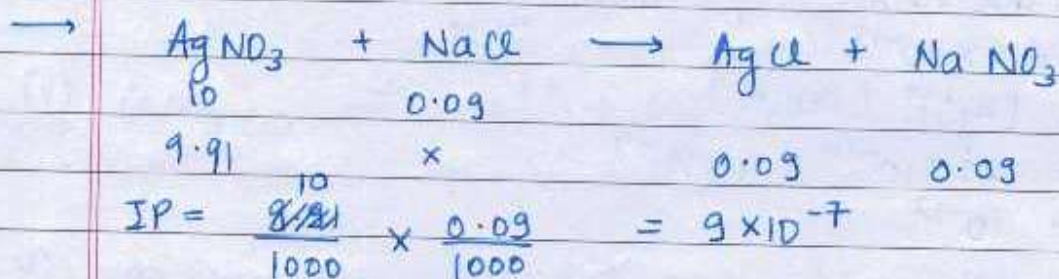 → AgNO₃ + NaCl → AgCl + NaNO₃
10 0.09
9.91 × 0.09 0.09
IP = 10/1000 × 0.09/1000 = 9 × 10⁻⁷